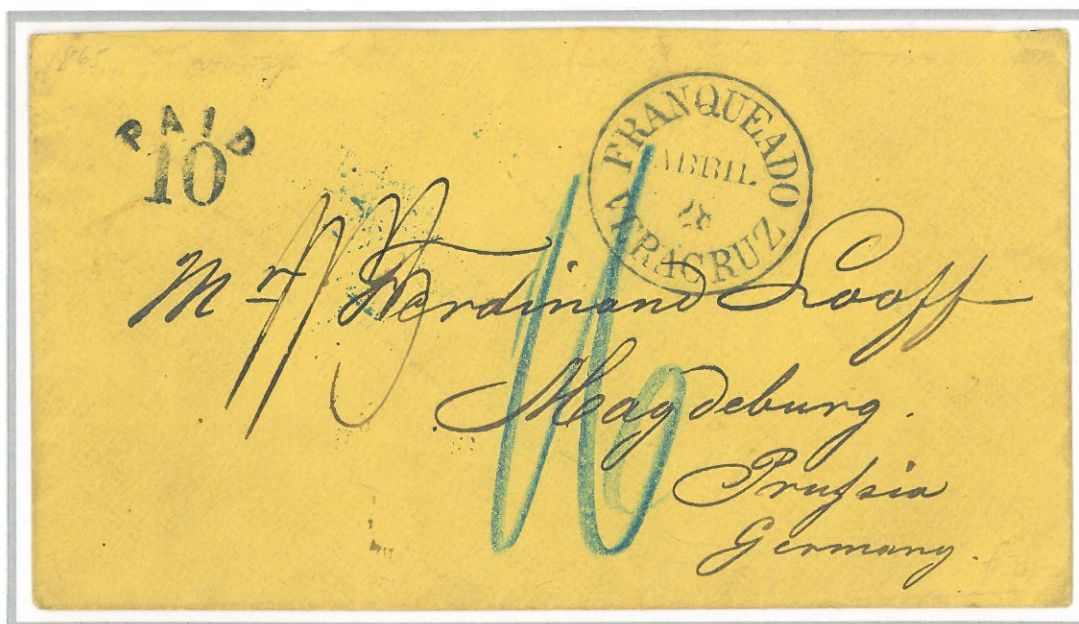 1865
PAID
10
FRANQUEADO
ABRIL
28
VERACRUZ
16
Mr Ferdinand Looff
Magdeburg.
Prußia
Germany.